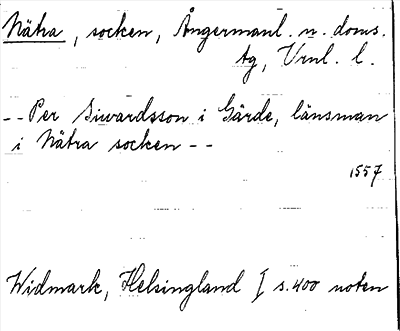 Nätra, socken, Ångermanl. n. doms.
tg, Vrnl. l.
-- Per Siwardsson i Gärde, länsman
i Nätra socken --
1557
Widmark, Helsingland I s. 400 noten